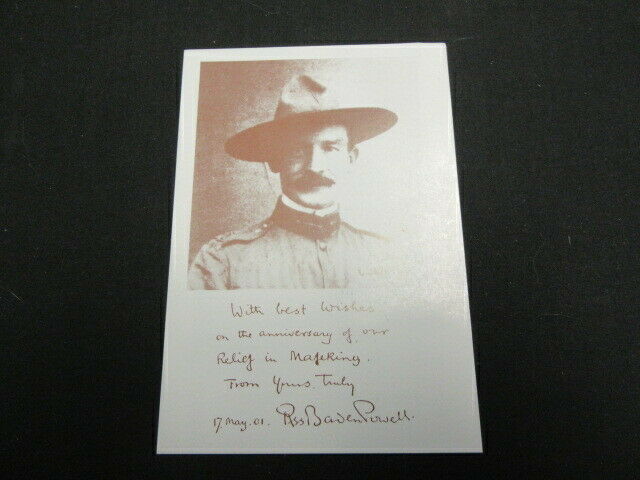 With best wishes
on the anniversary of our
Relief in Mafeking.
From Yours Truly
17 May. 01. RSS Baden Powell.